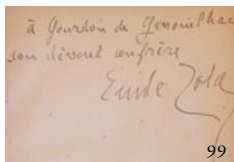 à Gourdon de Genouilhac
son dévoué confrère
Emile Zola
99